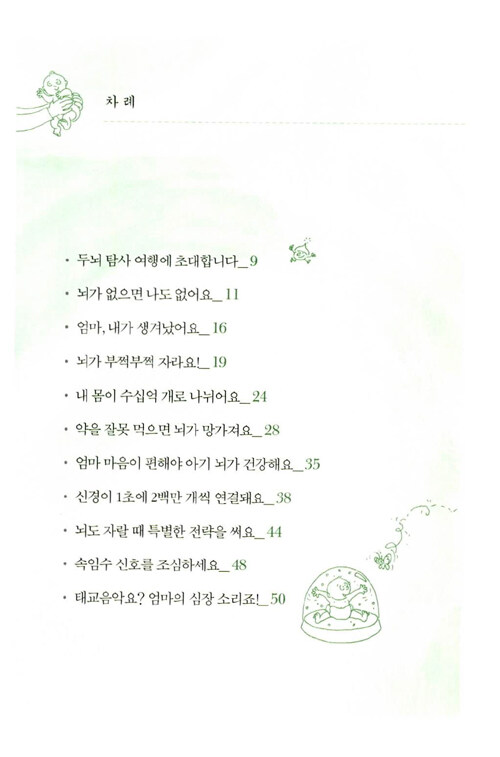 차 례
• 두뇌 탐사 여행에 초대합니다_9
• 뇌가 없으면 나도 없어요_11
• 엄마, 내가 생겨났어요_16
• 뇌가 부쩍부쩍 자라요!_19
• 내 몸이 수십억 개로 나뉘어요_24
• 약을 잘못 먹으면 뇌가 망가져요_28
• 엄마 마음이 편해야 아기 뇌가 건강해요_35
• 신경이 1초에 2백만 개씩 연결돼요_38
• 뇌도 자랄 때 특별한 전략을 써요_44
• 속임수 신호를 조심하세요_48
• 태교음악요? 엄마의 심장 소리죠!_50